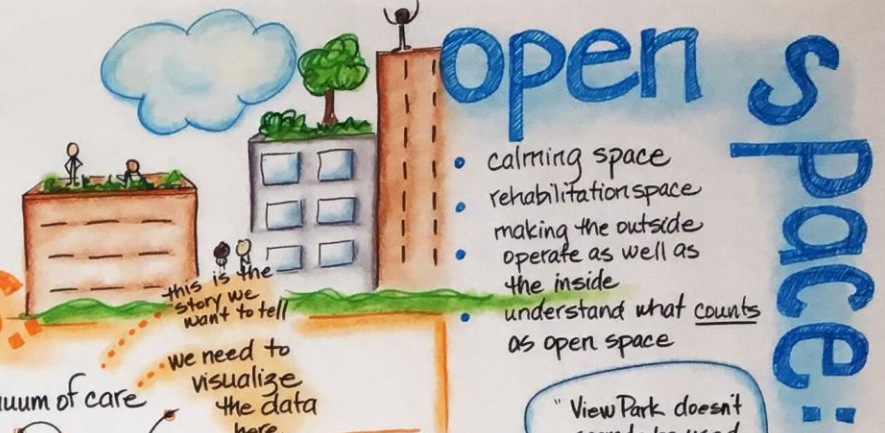 open
space:
calming space
rehabilitation space
making the outside
operate as well as
the inside
understand what counts
as open space
this is the
story we
want to tell
we need to
visualize
the data
here
of care
"View Park doesn't